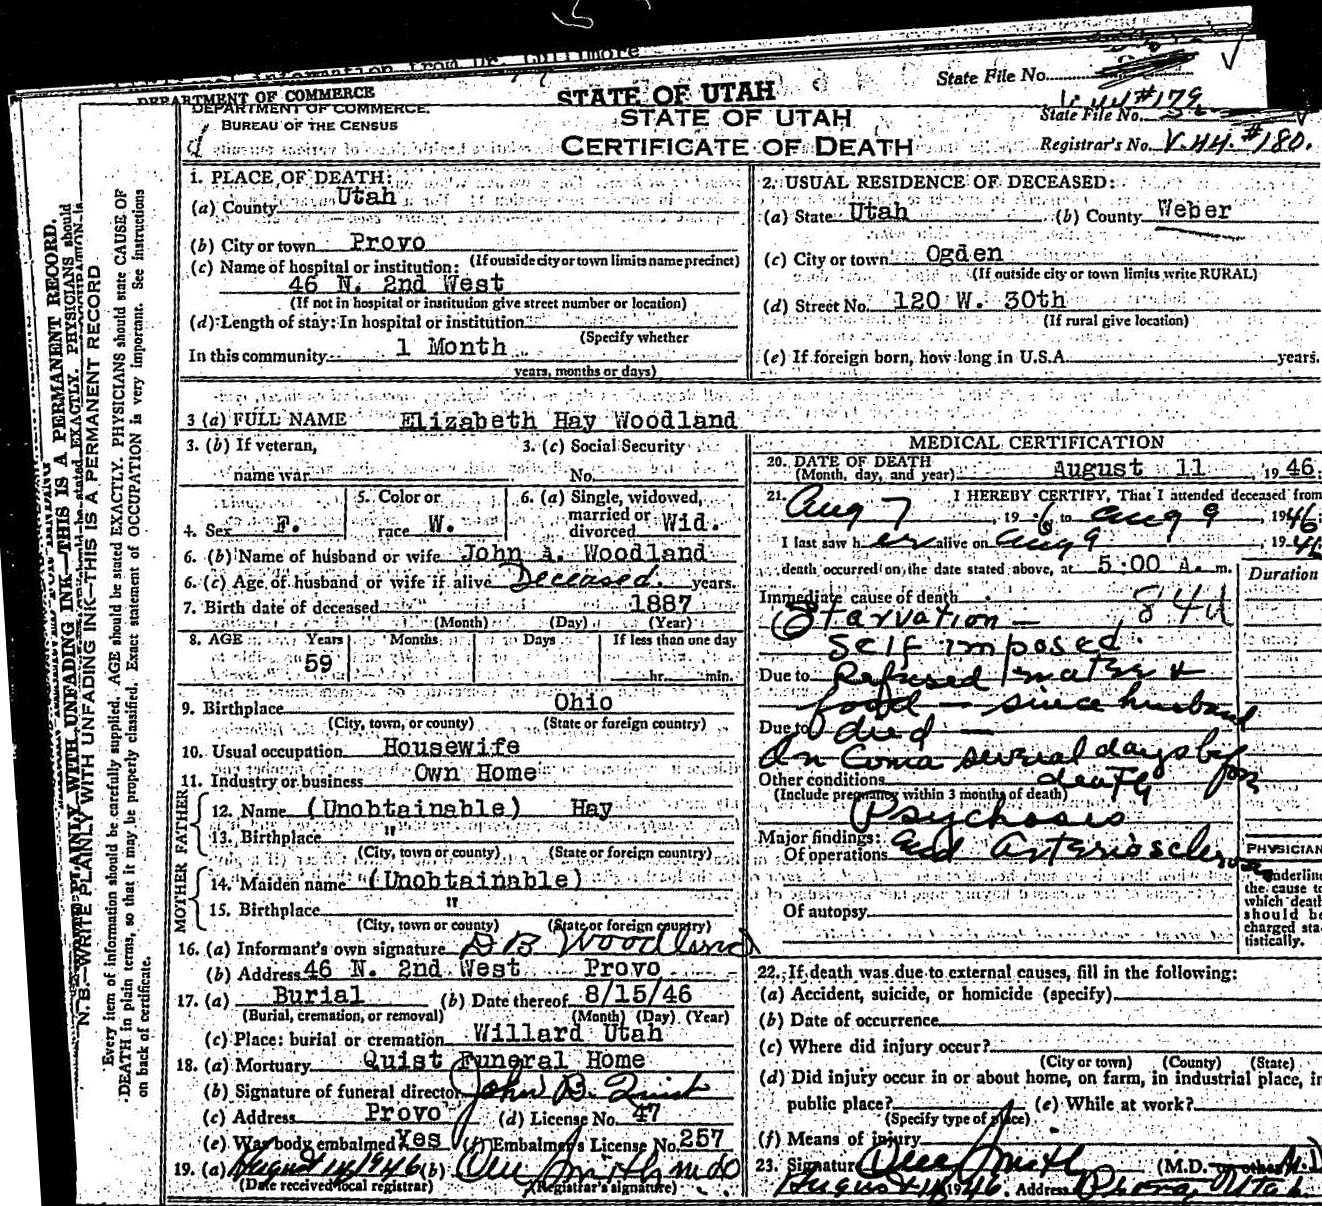 DEPARTMENT OF COMMERCE
STATE OF UTAH
State File No.
V. 44 #179
DEPARTMENT OF COMMERCE
BUREAU OF THE CENSUS
STATE OF UTAH
CERTIFICATE OF DEATH
State File No.
Registrar's No. V. 44. #180.
1. PLACE OF DEATH:
(a) County Utah
(b) City or town Provo
(If outside city or town limits name precinct)
(c) Name of hospital or institution:
46 N. 2nd West
(If not in hospital or institution give street number or location)
(d) Length of stay: In hospital or institution
(Specify whether
In this community 1 Month
years, months or days)
2. USUAL RESIDENCE OF DECEASED:
(a) State Utah (b) County Weber
(c) City or town Ogden
(If outside city or town limits write RURAL)
(d) Street No. 120 W. 30th
(If rural give location)
(e) If foreign born, how long in U.S.A. years.
3 (a) FULL NAME Elizabeth Hay Woodland
3. (b) If veteran,
name war
3. (c) Social Security
No.
4. Sex F.
5. Color or
race W.
6. (a) Single, widowed,
married or
divorced Wid.
6. (b) Name of husband or wife John A. Woodland
6. (c) Age of husband or wife if alive Deceased. years.
7. Birth date of deceased 1887
(Month) (Day) (Year)
8. AGE Years Months Days If less than one day
59 hr. min.
9. Birthplace Ohio
(City, town, or county) (State or foreign country)
10. Usual occupation Housewife
11. Industry or business Own Home
FATHER
12. Name (Unobtainable) Hay
13. Birthplace "
(City, town or county) (State or foreign country)
MOTHER
14. Maiden name (Unobtainable)
15. Birthplace "
(City, town or county) (State or foreign country)
16. (a) Informant's own signature D B Woodland
(b) Address 46 N. 2nd West Provo
17. (a) Burial (b) Date thereof 8/15/46
(Burial, cremation, or removal) (Month) (Day) (Year)
(c) Place: burial or cremation Willard Utah
18. (a) Mortuary Quist Funeral Home
(b) Signature of funeral director John B. Quist
(c) Address Provo (d) License No. 47
(e) Was body embalmed Yes (f) Embalmer's License No. 257
19. (a) August 14 1946 (b) Smith md
(Date received local registrar) (Registrar's signature)
MEDICAL CERTIFICATION
20. DATE OF DEATH
(Month, day, and year) August 11, 1946.
21. I HEREBY CERTIFY, That I attended deceased from
Aug 7, 1946 to Aug 9, 1946
I last saw her alive on Aug 9, 1946
death occurred on the date stated above, at 5:00 A. m.
Duration
Immediate cause of death 84d
Starvation —
Self imposed.
Due to Refused water &
food — since husband
Due to died —
In Coma several days before
Other conditions death
(Include pregnancy within 3 months of death)
Psychosis
Major findings:
Of operations and arteriosclerosis
Of autopsy
PHYSICIAN
Underline
the cause to
which death
should be
charged sta-
tistically.
22. If death was due to external causes, fill in the following:
(a) Accident, suicide, or homicide (specify)
(b) Date of occurrence
(c) Where did injury occur?
(City or town) (County) (State)
(d) Did injury occur in or about home, on farm, in industrial place, in
public place? (e) While at work?
(Specify type of place)
(f) Means of injury
23. Signature Smith (M.D. or other) M.D.
August 14 1946. Address Provo, Utah.
N. B.—WRITE PLAINLY WITH UNFADING INK—THIS IS A PERMANENT RECORD
Every item of information should be carefully supplied. AGE should be stated EXACTLY. PHYSICIANS should state CAUSE OF
DEATH in plain terms, so that it may be properly classified. Exact statement of OCCUPATION is very important. See instructions
on back of certificate.